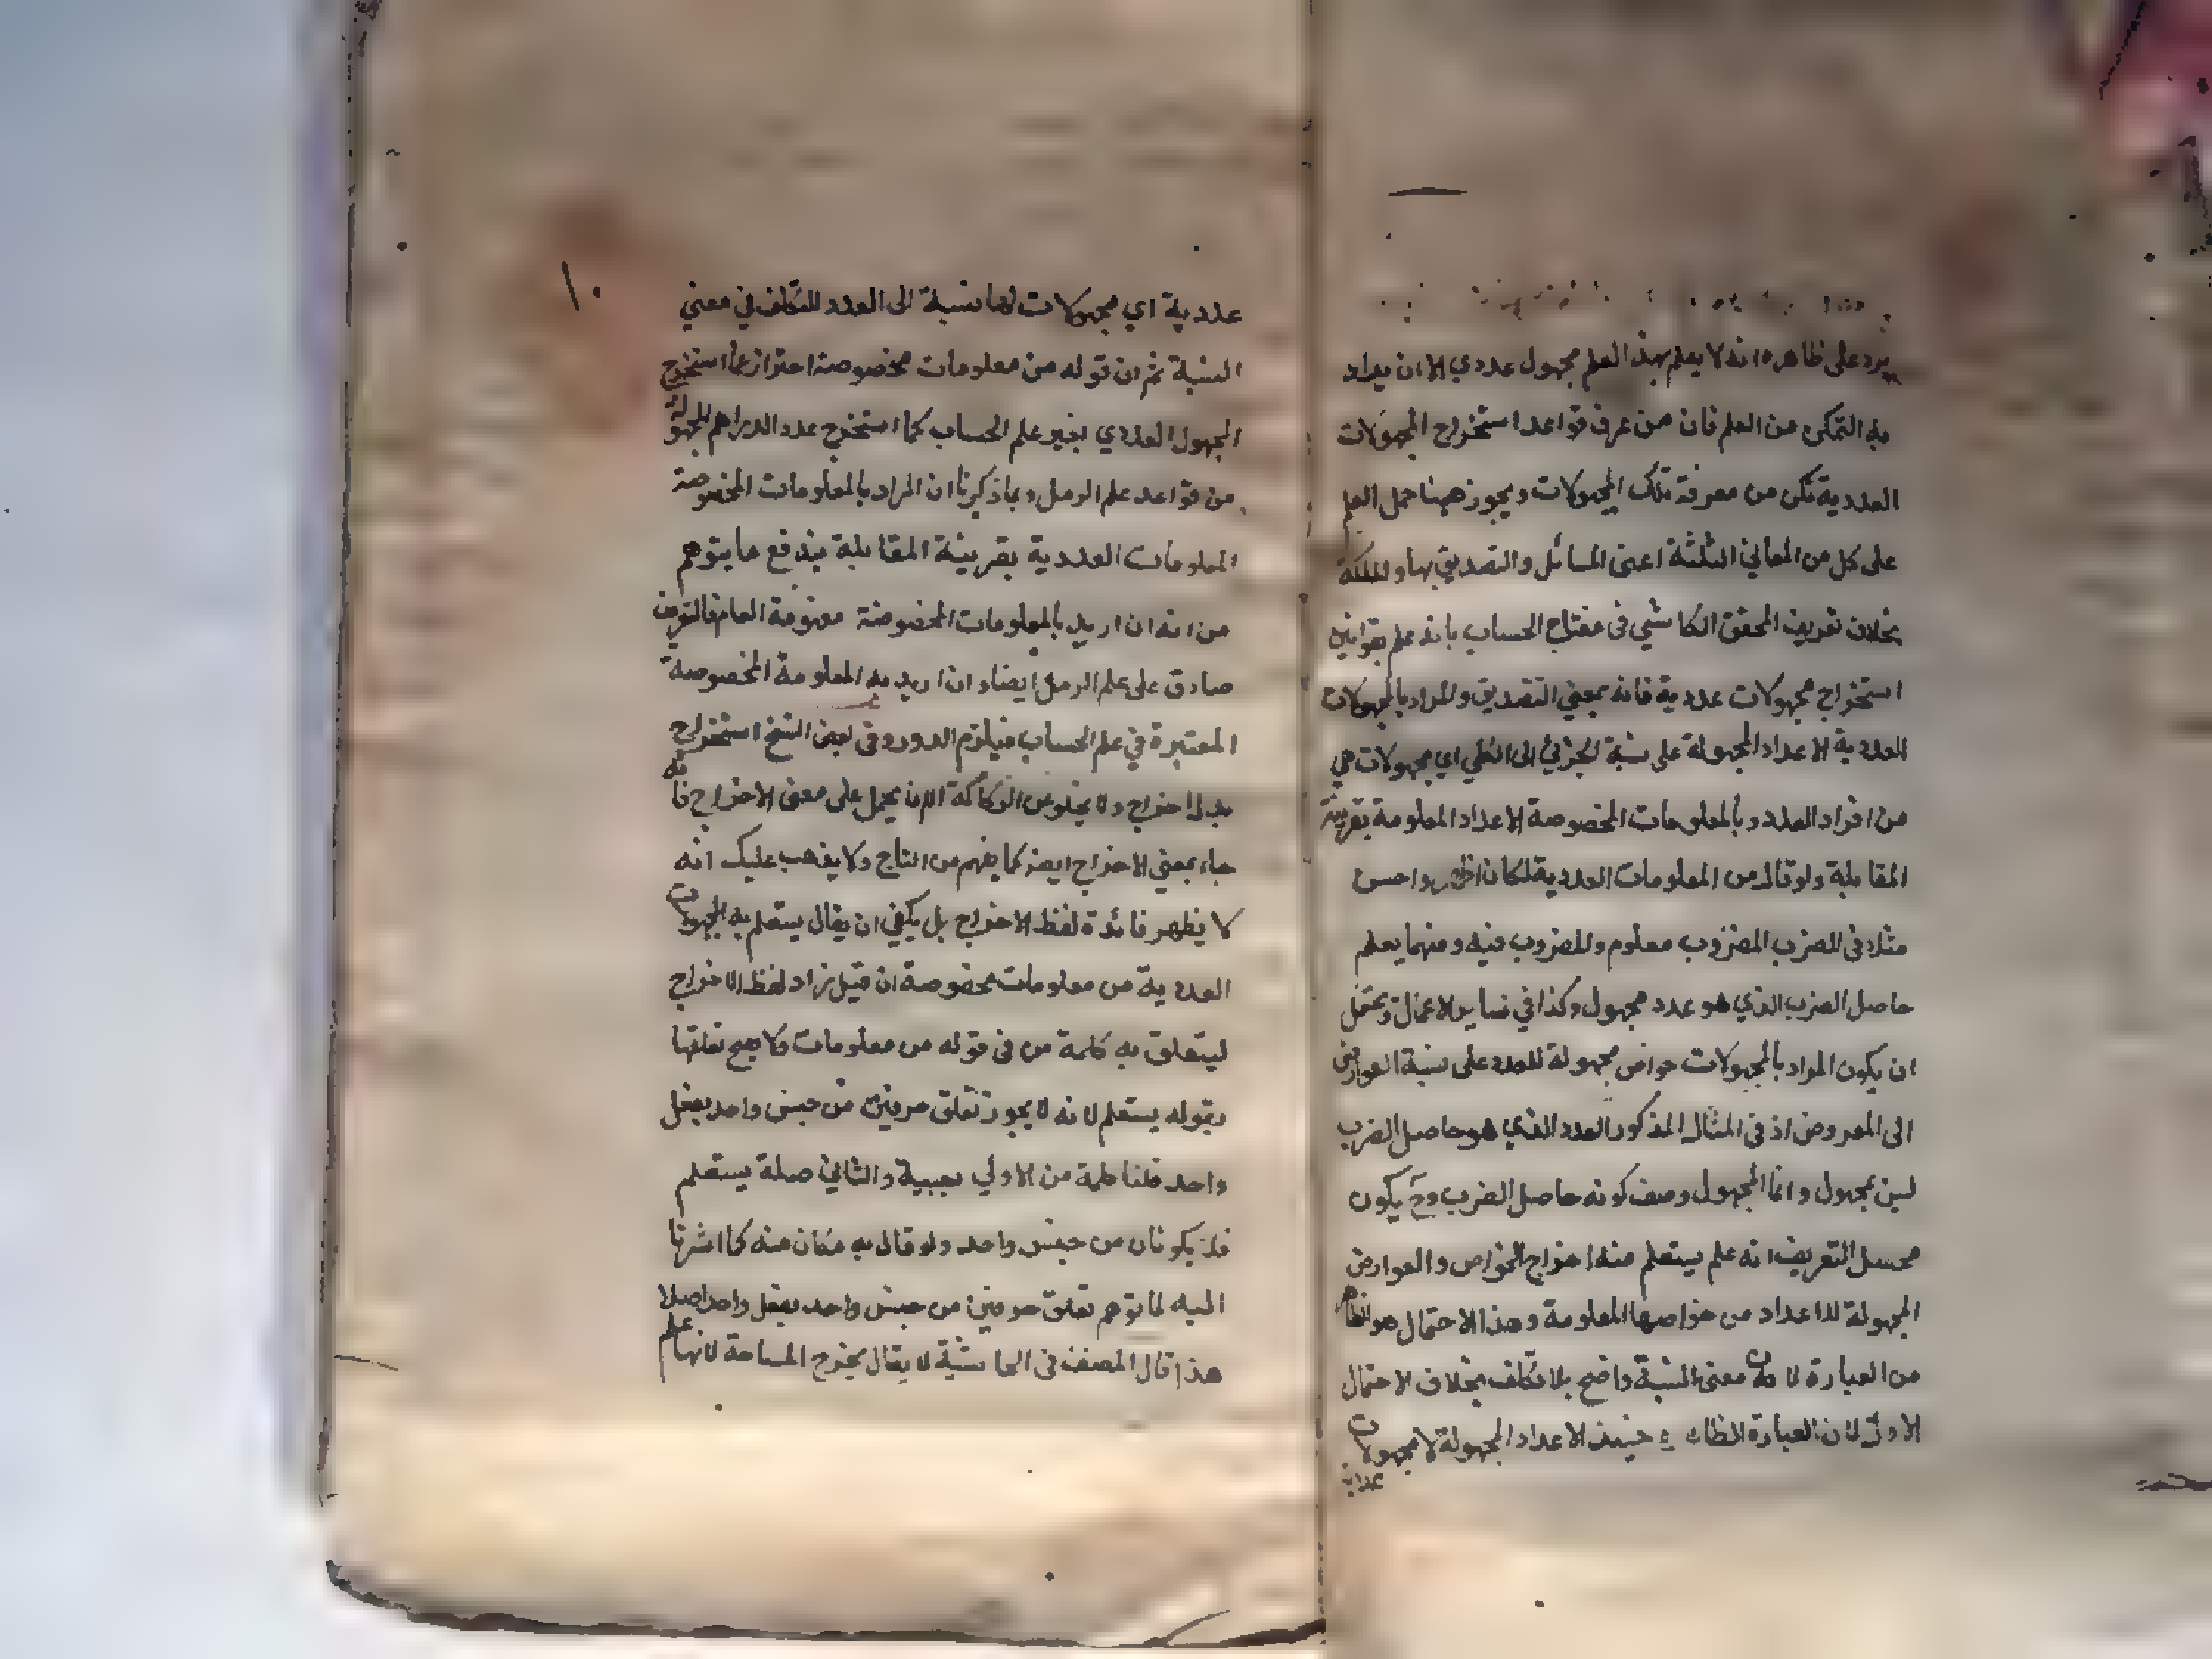 يرد على ظاهره انه لا يعلم بهذا العلم مجهول عددي الا ان يراد
به التمكن من العلم فان من عرف قواعد استخراج المجهولات
العددية تمكن من معرفة تلك المجهولات ويجوز ههنا حمل العلم
على كل من المعاني الثلثة اعنى المسائل والتصديق بها والملكة
بخلاف تعريف المحقق الكاشي فى مفتاح الحساب بانه علم بقوانين
استخراج مجهولات عددية فانه بمعني التصديق والمراد بالمجهولات
العددية الاعداد المجهولة على نسبة الجزئي الى الكلي اي مجهولات هي
من افراد العدد وبالمعلومات المخصوصة الاعداد المعلومة بقرينة
المقابلة ولو قال من المعلومات العددية لكان اظهر واحسن
مثلا فى الضرب المضروب معلوم والمضروب فيه ومنهما يعلم
حاصل الضرب الذي هو عدد مجهول وكذا في ساير الاعمال ويحتمل
ان يكون المراد بالمجهولات خواص مجهولة للعدد على نسبة العوارض
الى المعروض اذ فى المثال المذكور العدد الذي هو حاصل الضرب
ليس بمجهول وانما المجهول وصف كونه حاصل الضرب وح يكون
محصل التعريف انه علم يستعلم منه اخراج الخواص والعوارض
المجهولة للاعداد من خواصها المعلومة وهذا الاحتمال هو الظاهر
من العبارة لان معنى النسبة واضح بلا تكلف بخلاف الاحتمال
الاول لان العبارة الظاهرة حينئذ الاعداد المجهولة لا مجهولات
عددية
١٠
عددية اي مجهولات لها نسبة الى العدد للتكلف في معني
النسبة ثم ان قوله من معلومات مخصوصة احتراز عما استخرج
المجهول العددي بغير علم الحساب كما استخرج عدد الدراهم المجهولة
من قواعد علم الرمل وبما ذكرنا ان المراد بالمعلومات المخصوصة
المعلومات العددية بقرينة المقابلة يندفع ما يتوهم
من انه ان اريد بالمعلومات المخصوصة مفهومة العام فالتعريف
صادق على علم الرمل ايضا وان اريد به المعلومة المخصوصة
المعتبرة في علم الحساب فيلزم الدور وفى بعض النسخ استخراج
بدل اخراج ولا يخلو عن الركاكة الا ان يحمل على معنى الاخراج فانه
جاء بمعني الاخراج ايضا كما يفهم من التاج ولا يذهب عليك انه
لا يظهر فائدة لفظ الاخراج بل يكفي ان يقال يستعلم به المجهولات
العددية من معلومات مخصوصة ان قيل زاد لفظ الاخراج
ليتعلق به كلمة من فى قوله من معلومات ولا يصح تعلقها
بقوله يستعلم لانه لا يجوز تعلق حرفين من جنس واحد بفعل
واحد قلنا كلمة من الاولي سببية والثاني صلة يستعلم
فلا يكونان من جنس واحد ولو قال به مكان منه كما اشرنا
اليه لما توهم تعلق حرفين من جنس واحد بفعل واحد اصلا
هذا قال المصنف فى الحاشية لا يقال يخرج المساحة لانها علم